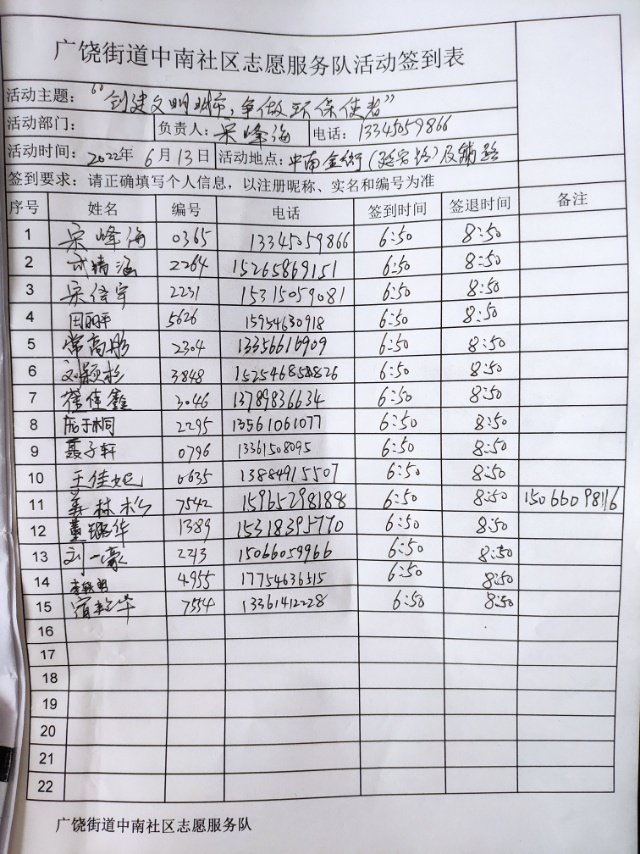 广饶街道中南社区志愿服务队活动签到表
活动主题：“创建文明城市，争做环保使者”
活动部门： 负责人：宋峰海 电话：13345059866
活动时间：2022年6月13日 活动地点：中南金街（ ）及辅路
签到要求：请正确填写个人信息，以注册昵称、实名和编号为准
序号 姓名 编号 电话 签到时间 签退时间 备注
1 宋峰海 0365 13345059866 6:50 8:50
2 2264 15265869151 6:50 8:50
3 宋佳宇 2231 15315059081 6:50 8:50
4 田丽平 5626 15954630918 6:50 8:50
5 常高彤 2304 13356616909 6:50 8:50
6 刘颖杉 3848 152546858826 6:50 8:50
7 崔佳鑫 3046 13789836634 6:50 8:50
8 2295 13561061077 6:50 8:50
9 聂子轩 0796 13361508095 6:50 8:50
10 王佳妮 0635 13884915507 6:50 8:50
11 林杉 7542 15965298188 6:50 8:50 15066098116
12 1389 15318395770 6:50 8:50
13 刘一豪 2213 15066059966 6:50 8:50
14 4955 17754636515 6:50 8:50
15 7554 13361412228 6:50 8:50
16
17
18
19
20
21
22
广饶街道中南社区志愿服务队